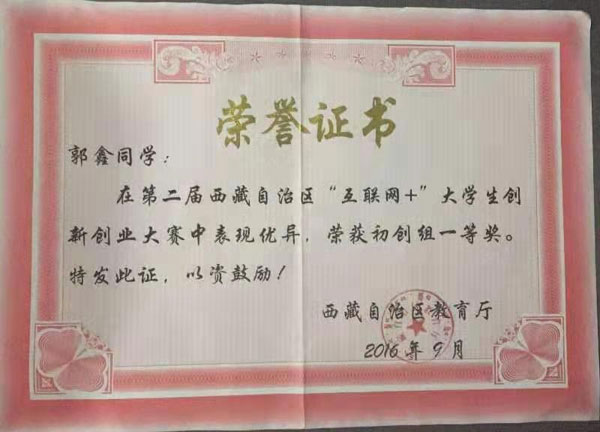 荣誉证书
郭鑫同学：
在第二届西藏自治区“互联网+”大学生创
新创业大赛中表现优异，荣获初创组一等奖。
特发此证，以资鼓励！
西藏自治区教育厅
2016年9月